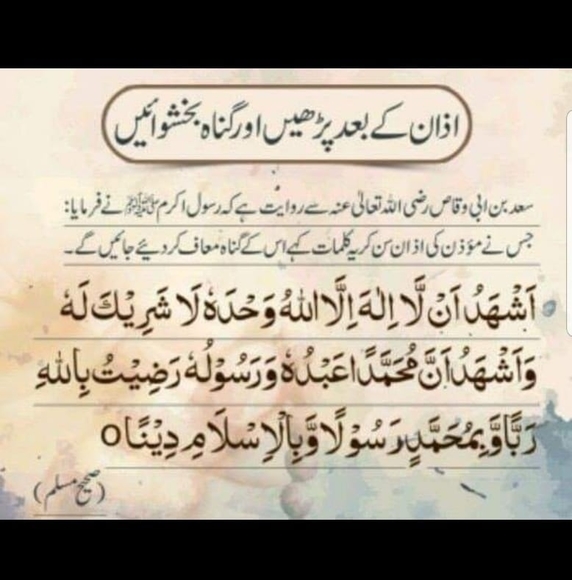 اذان کے بعد پڑھیں اور گناہ بخشوائیں
سعد بن ابی وقاص رضی اللہ تعالیٰ عنہ سے روایت ہے کہ رسول اکرم ﷺ نے فرمایا:
جس نے مؤذن کی اذان سن کر یہ کلمات کہے اس کے گناہ معاف کر دیئے جائیں گے۔
اَشْهَدُ اَنْ لَّا اِلٰهَ اِلَّا اللهُ وَحْدَهٗ لَا شَرِيْكَ لَهٗ
وَاَشْهَدُ اَنَّ مُحَمَّدًا عَبْدُهٗ وَرَسُوْلُهٗ رَضِيْتُ بِاللهِ
رَبًّا وَّبِمُحَمَّدٍ رَسُوْلًا وَّبِالْاِسْلَامِ دِيْنًا ○
(صحیح مسلم)